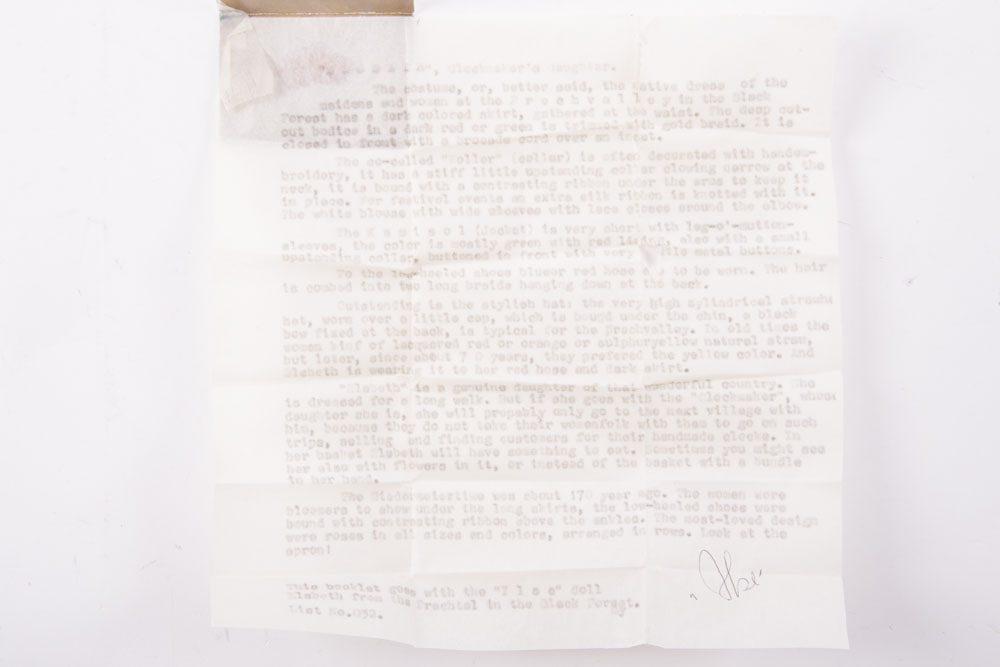 Clockmaker's daughter.
The costume, or, better said, the native dress of the
maidens and women at the P r e c h v a l l e y in the Black
Forest has a dark colored skirt, gathered at the waist. The deep cut-
out bodice in a dark red or green is trimmed with gold braid. It is
closed in front with a brocade cord over an inset.
The so-called "Koller" (collar) is often decorated with handem-
broidery, it has a stiff little upstanding collar closing narrow at the
neck, it is bound with a contrasting ribbon under the arms to keep it
in place. For festival events an extra silk ribbon is knotted with it.
The white blouse with wide sleeves with lace closes around the elbow.
The K a m i s o l (Jacket) is very short with leg-o'-mutton-
sleeves, the color is mostly green with red lining, also with a small
upstanding collar, buttoned in front with very little metal buttons.
To the low-heeled shoes blue or red hose are to be worn. The hair
is combed into two long braids hanging down at the back.
Outstanding is the stylish hat: the very high cylindrical straw
hat, worn over a little cap, which is bound under the chin, a black
bow fixed at the back, is typical for the prechvalley. In old times the
women of lacquered red or orange or sulphuryellow natural straw,
but later, since about 7 0 years, they prefered the yellow color. And
Elsbeth is wearing it to her red hose and dark skirt.
"Elsbeth" is a genuine daughter of that wonderful country. She
is dressed for a long walk. But if she goes with the "Clockmaker", whose
daughter she is, she will propably only go to the next village with
him, because they do not take their womenfolk with them to go on such
trips, selling and finding customers for their handmade clocks. In
her basket Elsbeth will have something to eat. Sometimes you might see
her also with flowers in it, or instead of the basket with a bundle
in her hand.
The Biedermeiertime was about 170 year ago. The women wore
bloomers to show under the long skirts, the low-healed shoes were
bound with contrasting ribbon above the ankles. The most-loved design
were roses in all sizes and colors, arranged in rows. Look at the
apron!
This booklet goes with the "I l s e" doll
Elsbeth from the Prechtal in the Black Forest.
List No.032.